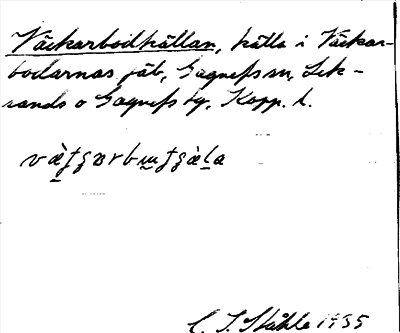 Väckarbodkällan, källa i Väckar-
bodarnas fäb, Gagnefs sn, Lek-
sands o Gagnefs tg, Kopp. l.
C. I. Ståhle 1935